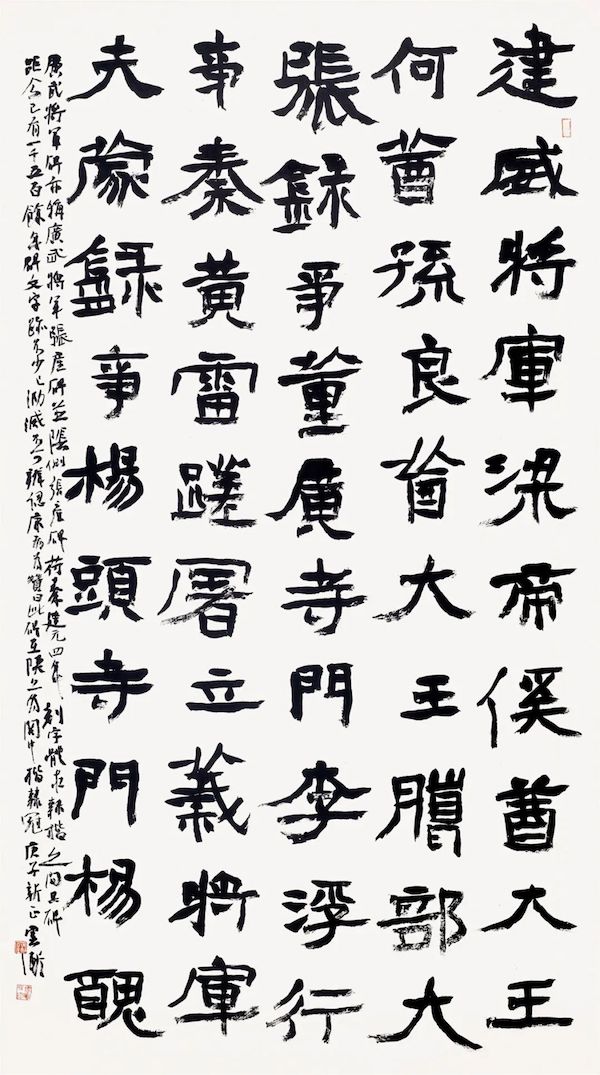 建威將軍梁帝傒酋大王
何酋孫良酋大王騰部大
張錄爭董廣寺門李浮行
事秦黃雷屠立義將軍
夫蒙錄事楊頭寺門楊醜
廣武將軍碑亦稱廣武將軍張產碑並陰側張產碑苻秦建元四年刻字體在隸楷之間其碑
距今已有一千五百餘年碑文字跡不少已泐滅不可辨認康有為贊曰此碑在陝為關中楷隸冠庚子新正雲